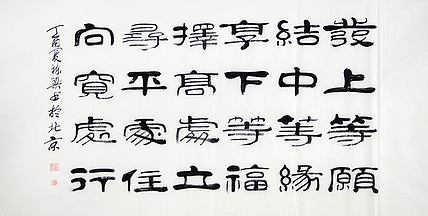 發上等願
結中等緣
享下等福
擇高處立
尋平處住
向寬處行
丁酉夏书於北京